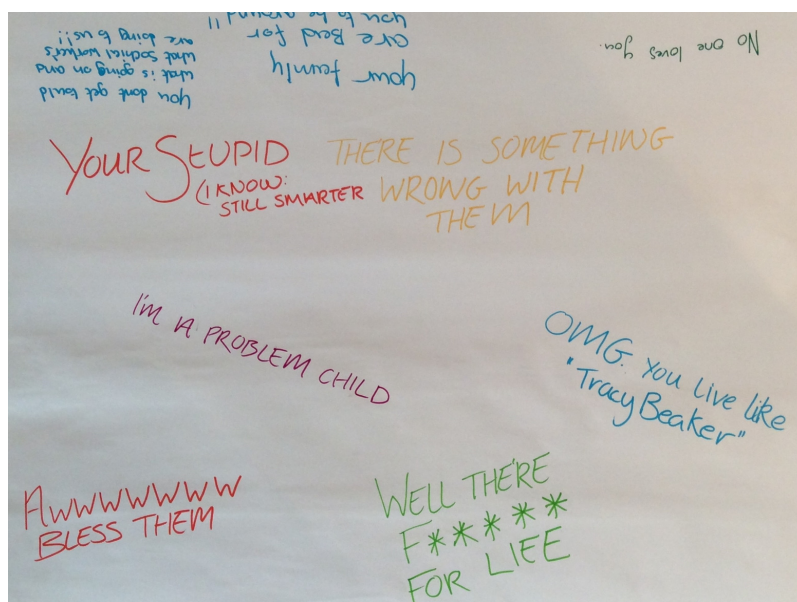 you dont get tould
what is going on and
what sochial worker's
are doing to us!!
your famly
are Bad for
you to be around !!
No one loves you.
YOUR STUPID
(I KNOW:
STILL SMARTER
THERE IS SOMETHING
WRONG WITH
THEM
I'M A PROBLEM CHILD
OMG. You Live like
"Tracy Beaker"
AWWWWWWW
BLESS THEM
WELL THE'RE
F*****
FOR LIFE